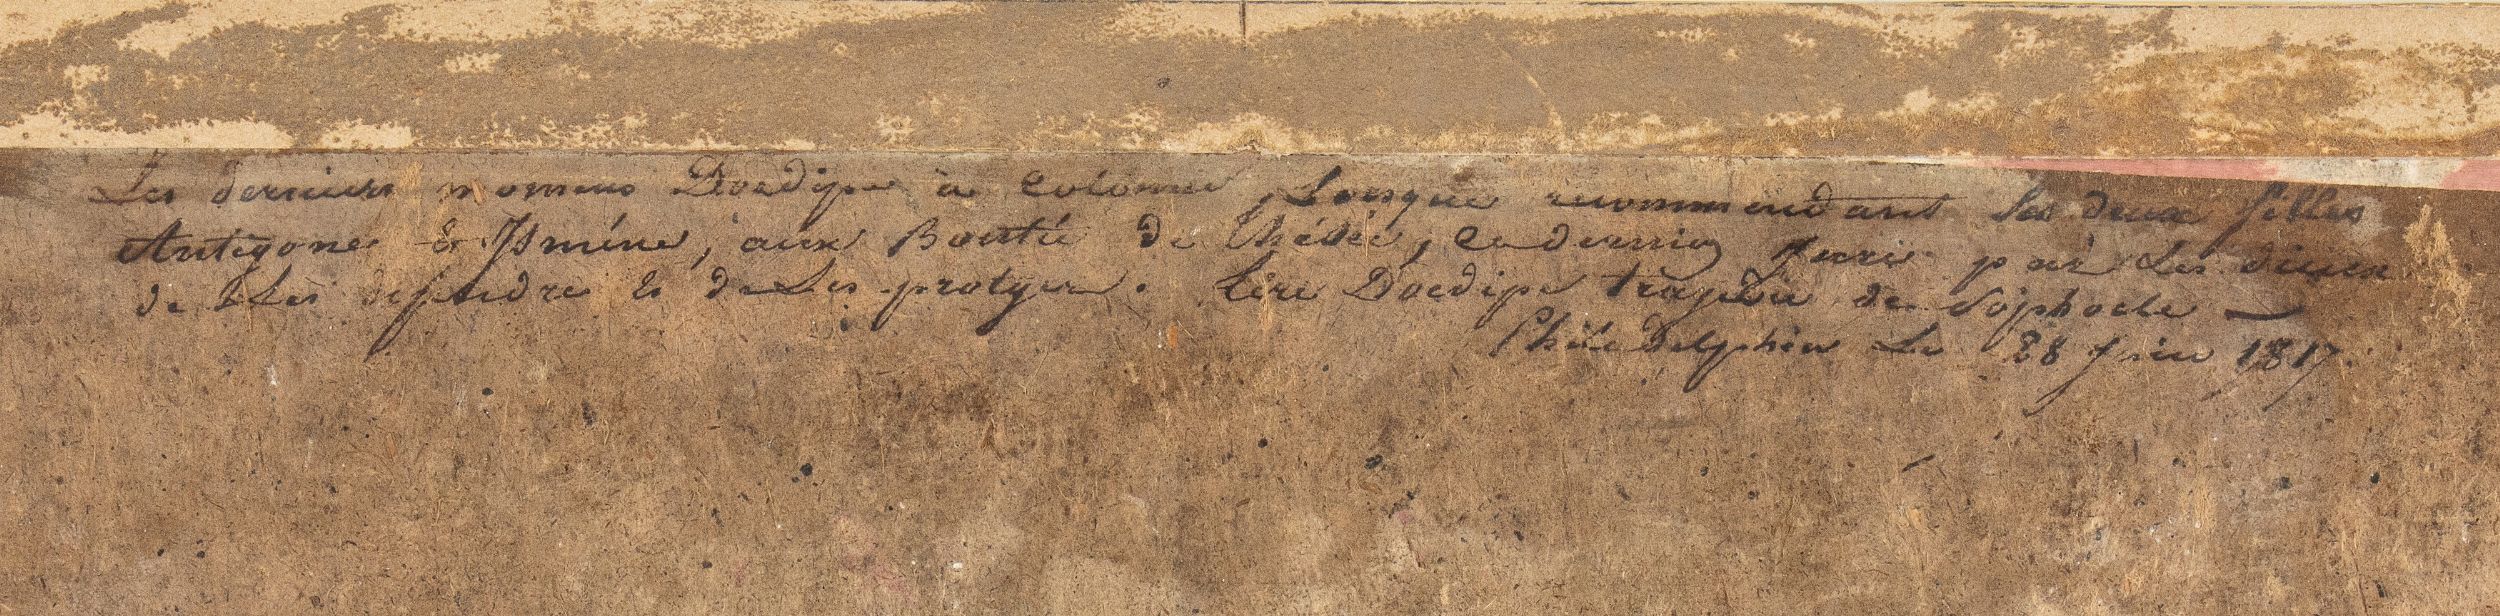 Les derniers momens Doedipe a Colonne, Lorsque recommendant Ses deux filles
Antigone & Isméne, aux Bonté de Thésée, Ce dernier Jure par Les dieux
de Les defendre & de Les protyer. tiré Doedipe trajedie de Sophocle —
PhilaDelphia Le 28 1817.